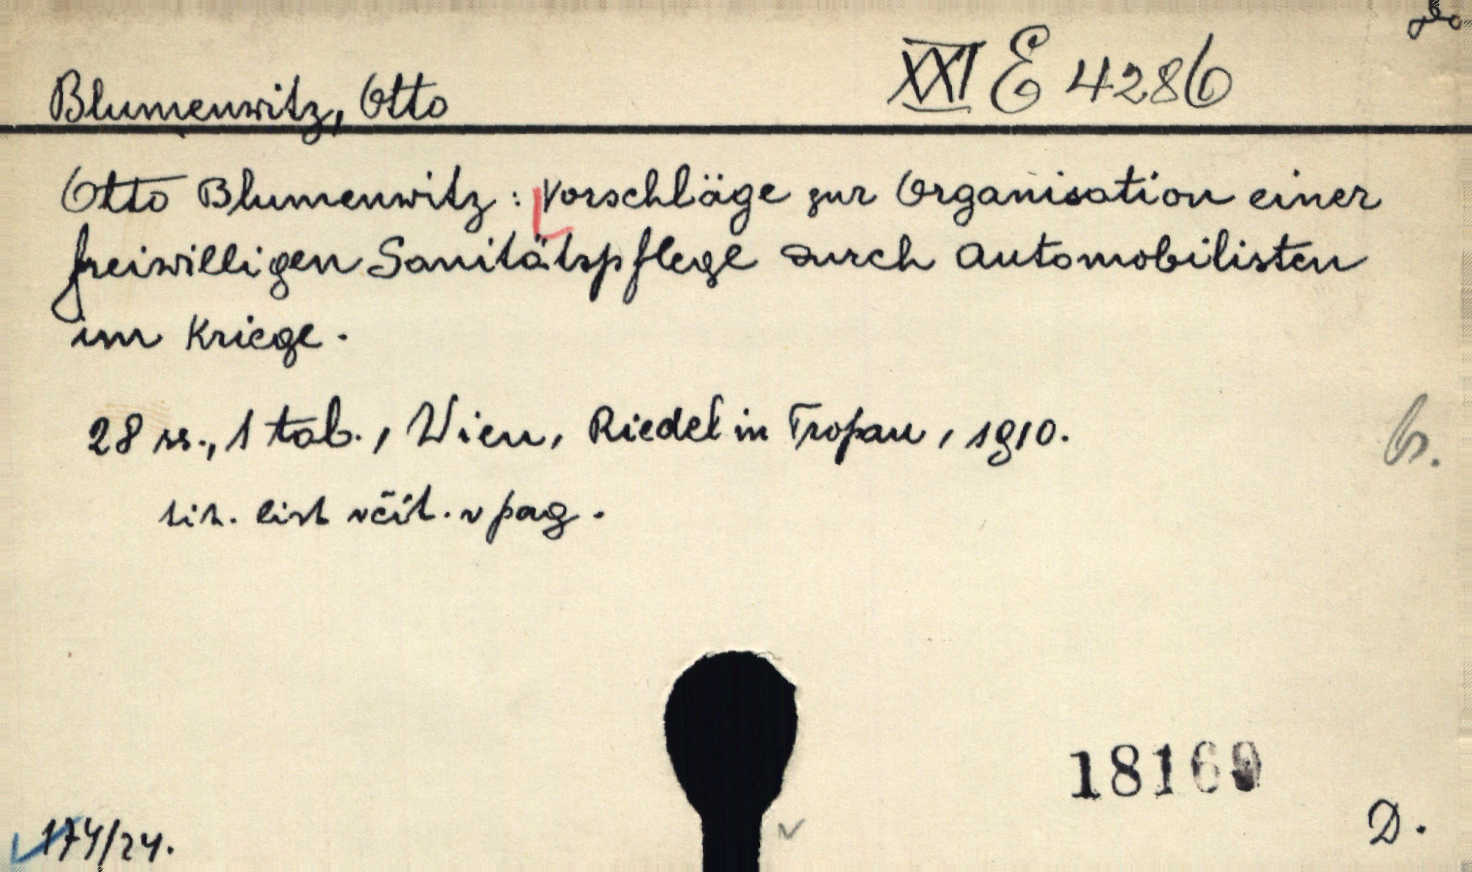 Blumenwitz, Otto
XXI E 4286
Otto Blumenwitz: Vorschläge zur Organisation einer
freiwilligen Sanitätspflege durch Automobilisten
im Kriege.
28 ss., 1 tab., Wien, Riedel in Tropau, 1910.
tit. list včit. v pag.
br.
1816
D.
174/24.